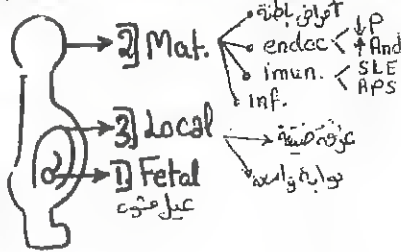 2] Mat.
أمراض باطنة
endoc
↓P
↑And
imun.
SLE
APS
inf.
3] Local
أوضة ضيقة
بوابة واسعة
1] Fetal
عيل مشوه